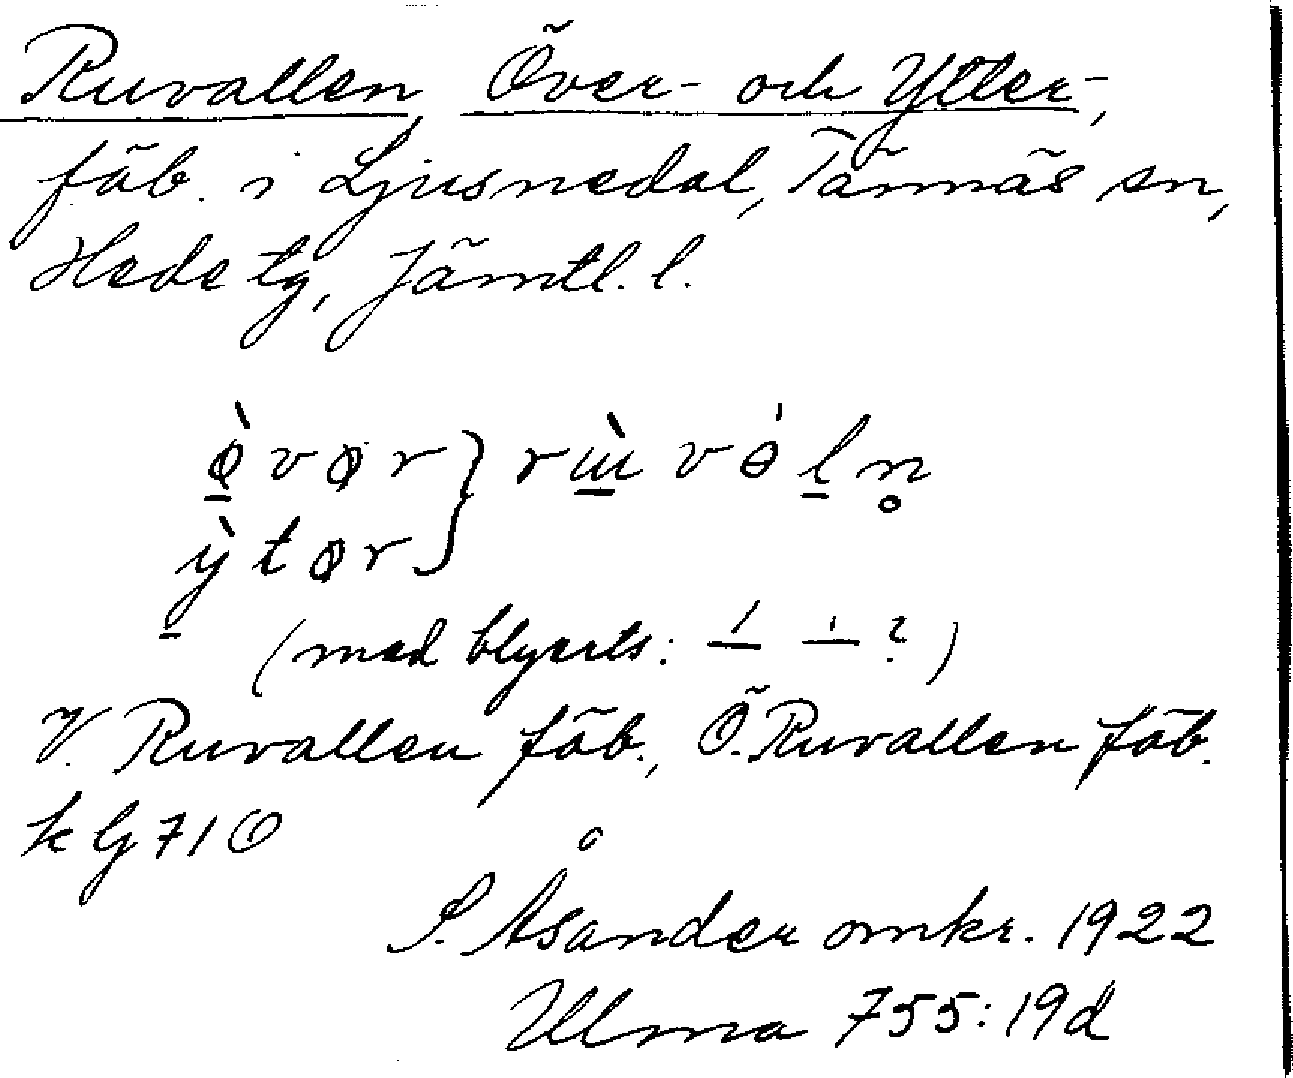 Ruvallen, Över- och Ytter-,
fäb. i Ljusnedal, Tännäs sn,
Hede tg, Jämtl. l.
ø̱̀vør } rɯ̱̀vɵ̍ḻn̥
ỳ̱tør
(med blyerts: –́ –̍ ?)
V. Ruvallen fäb., Ö. Ruvallen fäb.
k G 71 O
S. Åsander omkr. 1922
Ulma 755:19d